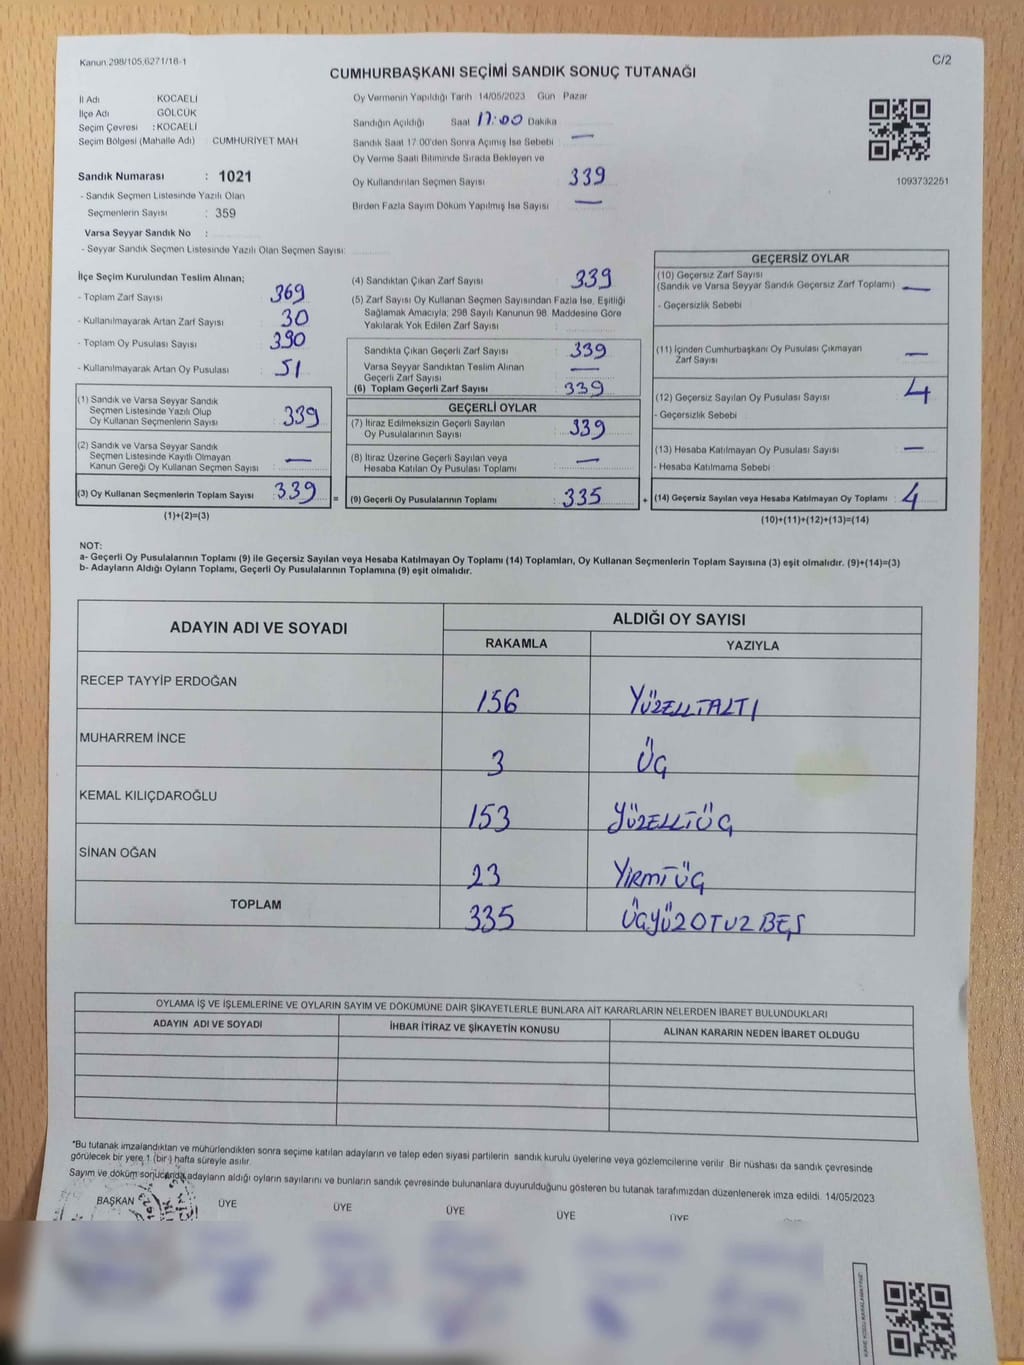 Kanun.298/105,6271/18-1
C/2
CUMHURBAŞKANI SEÇİMİ SANDIK SONUÇ TUTANAĞI
İl Adı KOCAELİ
İlçe Adı GÖLCÜK
Seçim Çevresi : KOCAELİ
Seçim Bölgesi (Mahalle Adı) CUMHURİYET MAH
Sandık Numarası : 1021
- Sandık Seçmen Listesinde Yazılı Olan
Seçmenlerin Sayısı : 359
Varsa Seyyar Sandık No :
- Seyyar Sandık Seçmen Listesinde Yazılı Olan Seçmen Sayısı:
Oy Vermenin Yapıldığı Tarih 14/05/2023 Gün Pazar
Sandığın Açıldığı Saat 17:00 Dakika
Sandık Saat 17 00'den Sonra Açımış İse Sebebi —
Oy Verme Saati Bitiminde Sırada Bekleyen ve
Oy Kullandırılan Seçmen Sayısı 339
Birden Fazla Sayım Döküm Yapılmış İse Sayısı —
1093732251
İlçe Seçim Kurulundan Teslim Alınan;
- Toplam Zarf Sayısı 369
- Kullanılmayarak Artan Zarf Sayısı : 30
- Toplam Oy Pusulası Sayısı : 390
- Kullanılmayarak Artan Oy Pusulası : 51
(1) Sandık ve Varsa Seyyar Sandık
Seçmen Listesinde Yazılı Olup
Oy Kullanan Seçmenlerin Sayısı : 339
(2) Sandık ve Varsa Seyyar Sandık
Seçmen Listesinde Kayıtlı Olmayan
Kanun Gereği Oy Kullanan Seçmen Sayısı : —
(3) Oy Kullanan Seçmenlerin Toplam Sayısı : 339 =
(1)+(2)=(3)
(4) Sandıktan Çıkan Zarf Sayısı : 339
(5) Zarf Sayısı Oy Kullanan Seçmen Sayısından Fazla İse, Eşitliği
Sağlamak Amacıyla; 298 Sayılı Kanunun 98. Maddesine Göre
Yakılarak Yok Edilen Zarf Sayısı :
Sandıkta Çıkan Geçerli Zarf Sayısı : 339
Varsa Seyyar Sandıktan Teslim Alınan
Geçerli Zarf Sayısı : —
(6) Toplam Geçerli Zarf Sayısı : 339
GEÇERLİ OYLAR
(7) İtiraz Edilmeksizin Geçerli Sayılan
Oy Pusulalarının Sayısı : 339
(8) İtiraz Üzerine Geçerli Sayılan veya
Hesaba Katılan Oy Pusulası Toplamı : —
(9) Geçerli Oy Pusulalarının Toplamı : 335 +
GEÇERSİZ OYLAR
(10) Geçersiz Zarf Sayısı
(Sandık ve Varsa Seyyar Sandık Geçersiz Zarf Toplamı) : —
- Geçersizlik Sebebi
(11) İçinden Cumhurbaşkanı Oy Pusulası Çıkmayan
Zarf Sayısı : —
(12) Geçersiz Sayılan Oy Pusulası Sayısı : 4
- Geçersizlik Sebebi
(13) Hesaba Katılmayan Oy Pusulası Sayısı : —
- Hesaba Katılmama Sebebi
(14) Geçersiz Sayılan veya Hesaba Katılmayan Oy Toplamı : 4
(10)+(11)+(12)+(13)=(14)
NOT:
a- Geçerli Oy Pusulalarının Toplamı (9) ile Geçersiz Sayılan veya Hesaba Katılmayan Oy Toplamı (14) Toplamları, Oy Kullanan Seçmenlerin Toplam Sayısına (3) eşit olmalıdır. (9)+(14)=(3)
b- Adayların Aldığı Oyların Toplamı, Geçerli Oy Pusulalarının Toplamına (9) eşit olmalıdır.
ADAYIN ADI VE SOYADI
ALDIĞI OY SAYISI
RAKAMLA YAZIYLA
RECEP TAYYİP ERDOĞAN 156 YÜZELLİALTI
MUHARREM İNCE 3 ÜÇ
KEMAL KILIÇDAROĞLU 153 YÜZELLİÜÇ
SİNAN OĞAN 23 YİRMİÜÇ
TOPLAM 335 ÜÇYÜZOTUZBEŞ
OYLAMA İŞ VE İŞLEMLERİNE VE OYLARIN SAYIM VE DÖKÜMÜNE DAİR ŞİKAYETLERLE BUNLARA AİT KARARLARIN NELERDEN İBARET BULUNDUKLARI
ADAYIN ADI VE SOYADI İHBAR İTİRAZ VE ŞİKAYETİN KONUSU ALINAN KARARIN NEDEN İBARET OLDUĞU
*Bu tutanak imzalandıktan ve mühürlendikten sonra seçime katılan adayların ve talep eden siyasi partilerin sandık kurulu üyelerine veya gözlemcilerine verilir Bir nüshası da sandık çevresinde
görülecek bir yere 1 (bir) hafta süreyle asılır.
Sayım ve döküm sonucunda adayların aldığı oyların sayılarını ve bunların sandık çevresinde bulunanlara duyurulduğunu gösteren bu tutanak tarafımızdan düzenlenerek imza edildi. 14/05/2023
BAŞKAN ÜYE ÜYE ÜYE ÜYE ÜYE